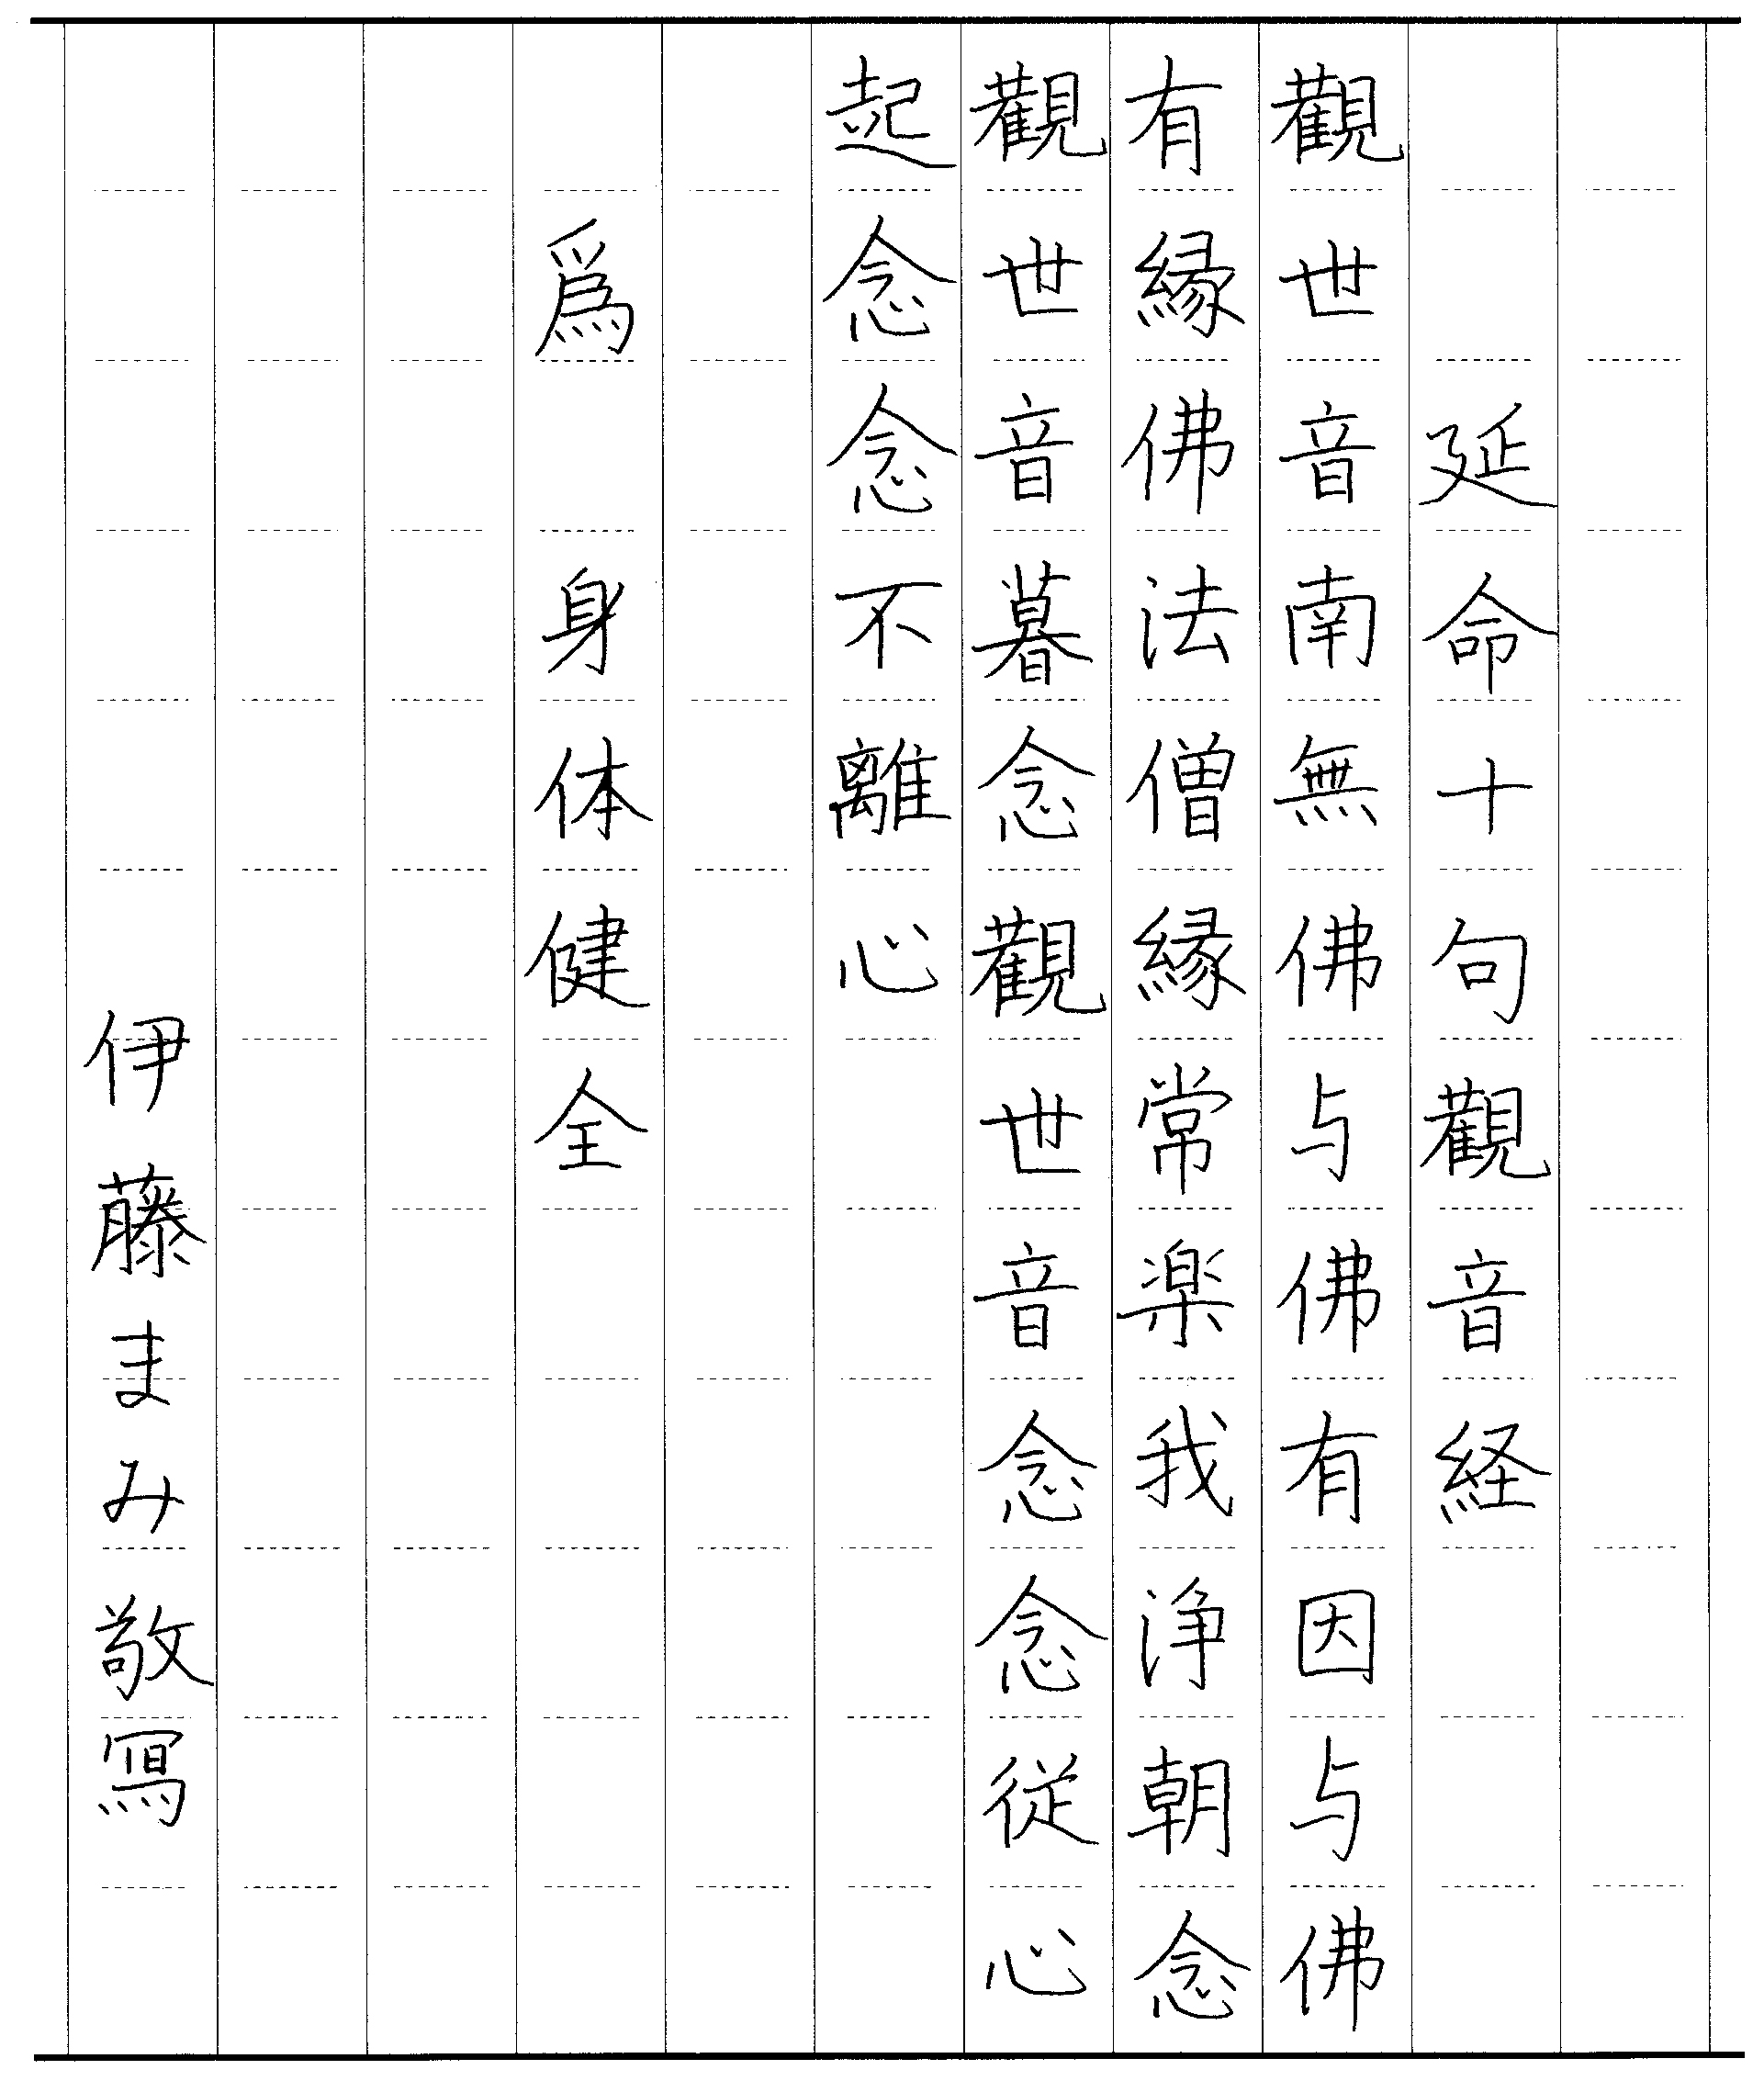 延命十句觀音経
觀世音南無佛与佛有因与佛
有縁佛法僧縁常楽我浄朝念
觀世音暮念觀世音念念従心
起念念不離心
爲 身体健全
伊藤まみ敬冩